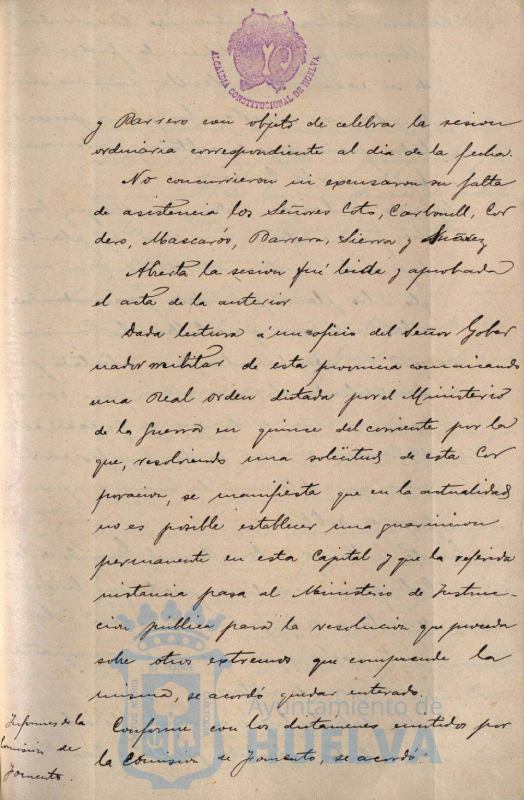 ALCALDIA CONSTITUCIONAL DE HUELVA
y Barrero con objeto de celebrar la sesion
ordinaria correspondiente al dia de la fecha.
No concurrieron ni excusaron su falta
de asistencia los Señores Coto, Carbonell, Cor
dero, Mascarós, Barrera, Sierra y Suárez
Abierta la sesion fué leida y aprobada
el acta de la anterior
Dada lectura á un oficio del Señor Gober
nador militar de esta provincia comunicando
una Real orden dictada por el Ministerio
de la Guerra en quince del corriente por la
que, resolviendo una solicitud de esta Cor
poracion, se manifiesta que en la actualidad
no es posible establecer una guarnicion
permanente en esta Capital y que la referida
instancia pasa al Ministerio de Instruc-
cion publica para la resolucion que proceda
sobre otros extremos que comprende la
misma, se acordó quedar enterado.
Informes de la
Comision de
Fomento.
Conforme con los dictamenes emitidos por
la Comision de Fomento, se acordó:
Ayuntamiento de
HUELVA